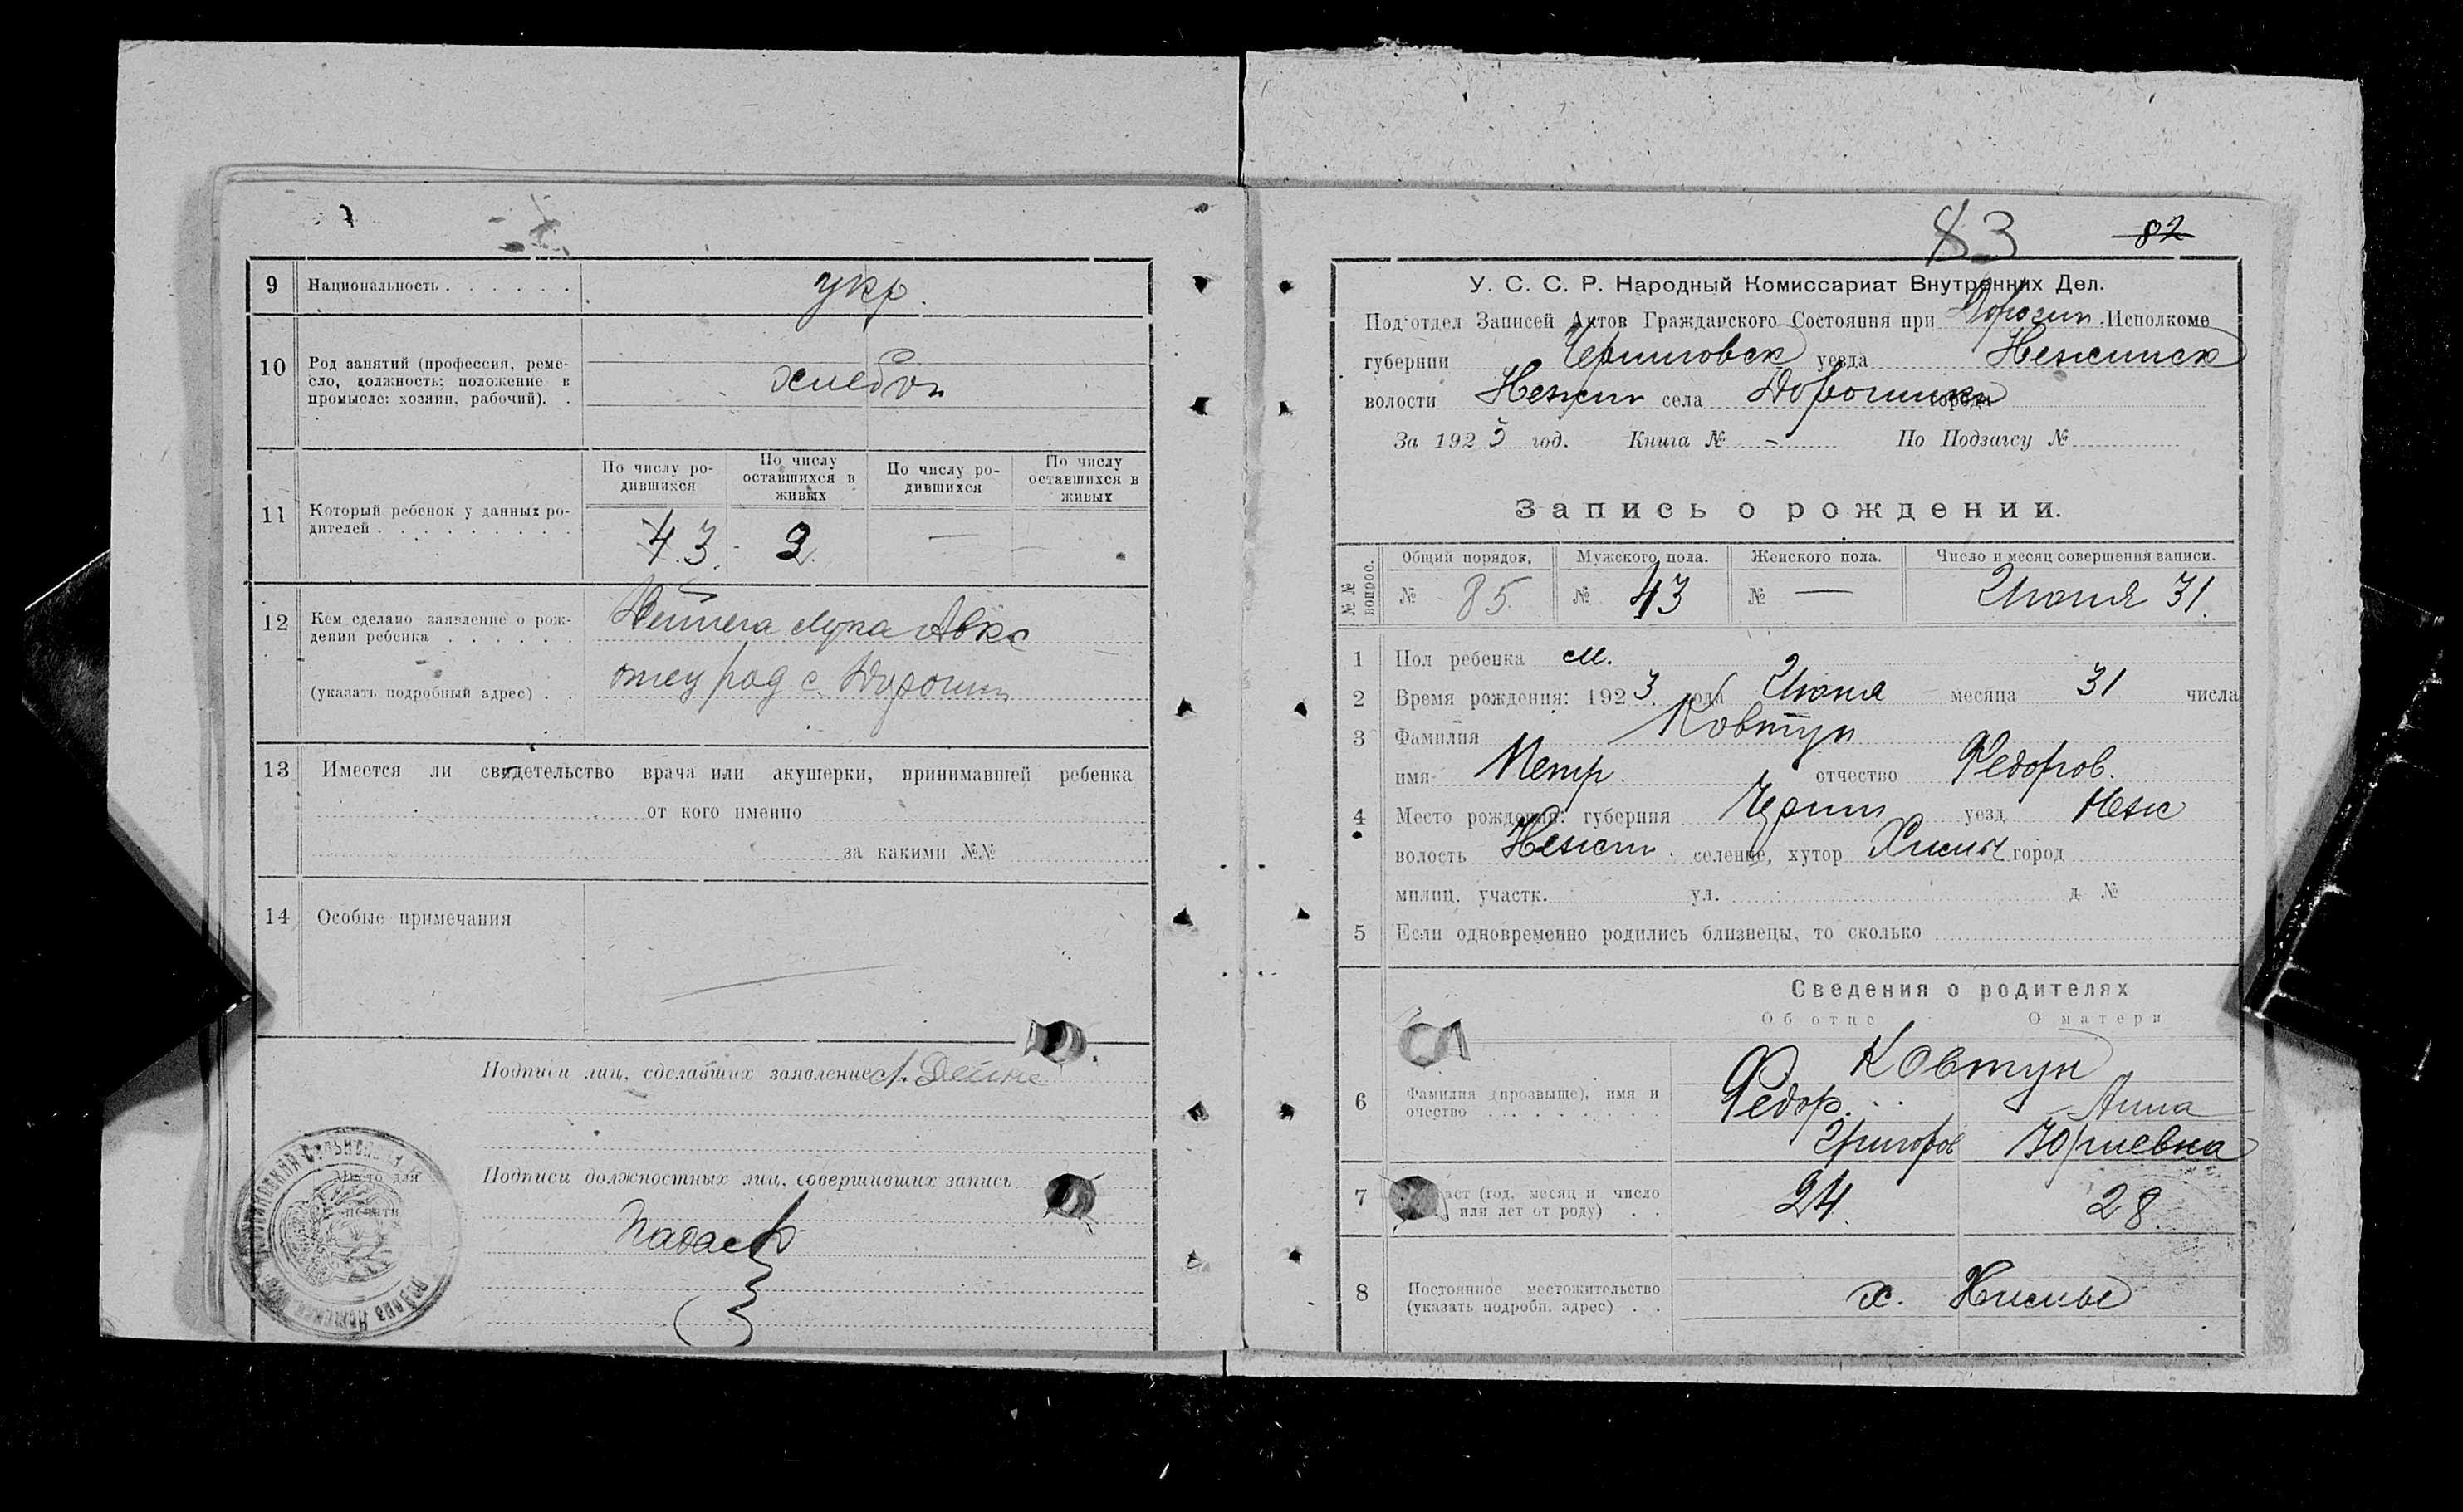 9 Национальность . . . . . . укр.
10 Род занятий (профессия, реме-
сло, должность; положение в
промысле: хозяин, рабочий). .
хлебоп
11 Который ребенок у данных ро-
дителей . . . . . . . . .
По числу ро-
дившихся
По числу
оставшихся в
живых
По числу ро-
дившихся
По числу
оставшихся в
живых
4 3. - 2. — —
12 Кем сделано заявление о рож-
дении ребенка . . . . . .
(указать подробный адрес) . .
Лука Авкс
отец род с.
13 Имеется ли свидетельство врача или акушерки, принимавшей ребенка
от кого именно
за какими №№
14 Особые примечания
Подписи лиц, сделавших заявление
Подписи должностных лиц, совершивших запись
Место для
печати
83 82
У. С. С. Р. Народный Комиссариат Внутренних Дел.
Под‘отдел Записей Актов Гражданского Состояния при Исполкоме
губернии Черниговск уезда Нежинск
волости Нежин села города
За 1923 год. Книга № - По Подзагсу №
Запись о рождении.
№ № вопрос.
Общий порядок. Мужского пола. Женского пола. Число и месяц совершения записи.
№ 85 № 43 № — Июля 31.
1 Пол ребенка м.
2 Время рождения: 1923. года Июля месяца 31 числа
3 Фамилия Ковтун
имя Петр. отчество Федоров.
4 Место рождения: губерния Черниг уезд Неж
волость Нежин. селение, хутор город
милиц. участк. ул. д. №
5 Если одновременно родились близнецы, то сколько
Сведения о родителях
Об отце О матери
6 Фамилия (прозвыще), имя и
очество . . . . . . . . .
Ковтун
Федор. Анна
Григоров Юриевна
7 раст (год, месяц и число
или лет от роду) . .
24. 28.
8 Постоянное местожительство
(указать подробн. адрес) . .
х.